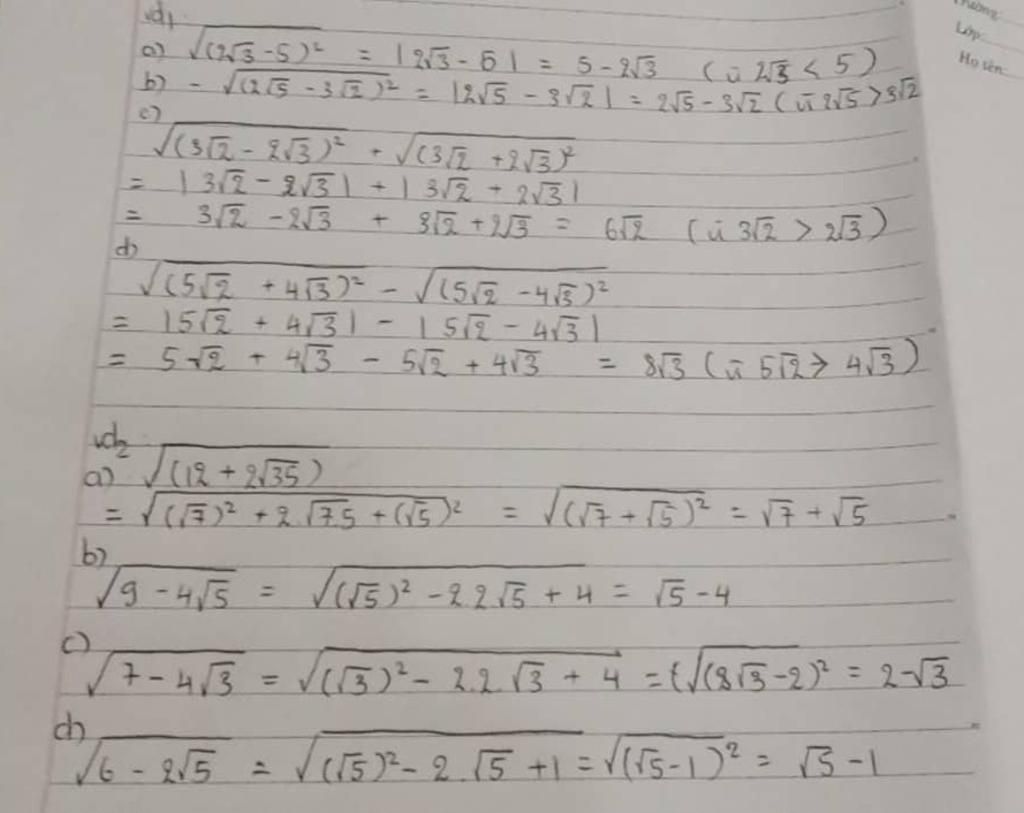 vd1
a) √(2√3-5)² = |2√3-5| = 5-2√3 (vì 2√3 < 5)
b) -√(2√5 - 3√2)² = |2√5 - 3√2| = 2√5-3√2 (vì 2√5 > 3√2
c)
√(3√2 - 2√3)² + √(3√2 + 2√3)²
= |3√2 - 2√3| + |3√2 + 2√3|
= 3√2 - 2√3 + 3√2 + 2√3 = 6√2 (vì 3√2 > 2√3)
d)
√(5√2 + 4√3)² - √(5√2 - 4√3)²
= |5√2 + 4√3| - |5√2 - 4√3|
= 5√2 + 4√3 - 5√2 + 4√3 = 8√3 (vì 5√2 > 4√3)
vd2
a) √(12 + 2√35)
= √(√7)² + 2.√7.5 + (√5)² = √(√7 + √5)² = √7 + √5
b)
√9 - 4√5 = √(√5)² - 2.2.√5 + 4 = √5 - 4
c)
√7 - 4√3 = √(√3)² - 2.2.√3 + 4 = √(√3-2)² = 2-√3
d)
√6 - 2√5 = √(√5)² - 2.√5 + 1 = √(√5-1)² = √5 - 1
Trường:
Lớp:
Họ tên: